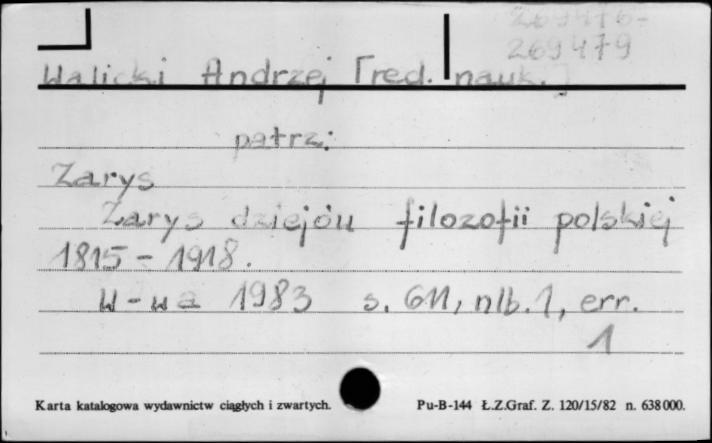 269476-
269479
Walicki Andrzej [red. nauk.]
patrz:
Zarys
Zarys dziejów filozofii polskiej
1815-1918.
W-wa 1983 s. 611, nlb. 1, err.
1
Karta katalogowa wydawnictw ciągłych i zwartych. Pu-B-144 Ł.Z.Graf. Z. 120/15/82 n. 638 000.